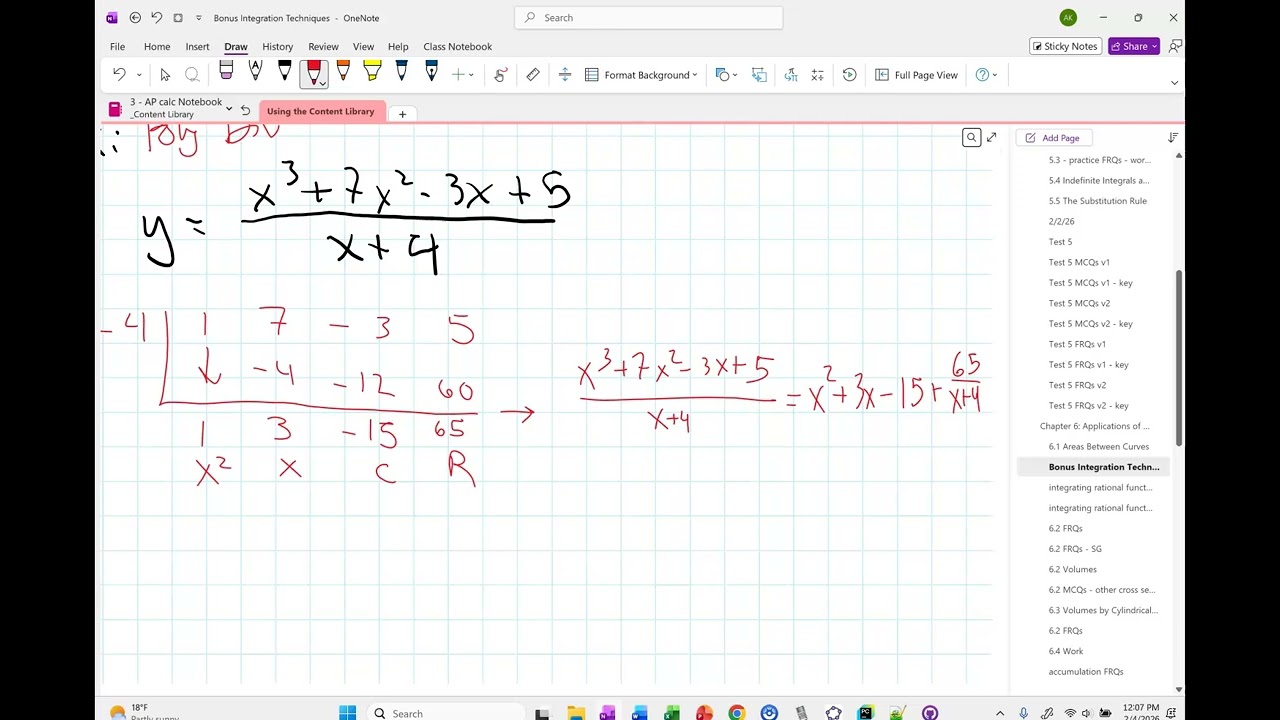 Bonus Integration Techniques - OneNote
Search
AK
File Home Insert Draw History Review View Help Class Notebook
Sticky Notes
Share
Format Background
Full Page View
3 - AP calc Notebook
_Content Library
Using the Content Library
Add Page
∴ Poly Div
y = (x³ + 7x² - 3x + 5)/(x + 4)
-4 | 1 7 -3 5
↓ -4 -12 60
1 3 -15 65
x² x C R
→ (x³+7x²-3x+5)/(x+4) = x²+3x-15+65/(x+4)
5.3 - practice FRQs - wor...
5.4 Indefinite Integrals a...
5.5 The Substitution Rule
2/2/26
Test 5
Test 5 MCQs v1
Test 5 MCQs v1 - key
Test 5 MCQs v2
Test 5 MCQs v2 - key
Test 5 FRQs v1
Test 5 FRQs v1 - key
Test 5 FRQs v2
Test 5 FRQs v2 - key
Chapter 6: Applications of ...
6.1 Areas Between Curves
Bonus Integration Techn...
integrating rational funct...
integrating rational funct...
6.2 FRQs
6.2 FRQs - SG
6.2 Volumes
6.2 MCQs - other cross se...
6.3 Volumes by Cylindrical...
6.2 FRQs
6.4 Work
accumulation FRQs
18°F
Partly sunny
Search
12:07 PM
2/4/2026